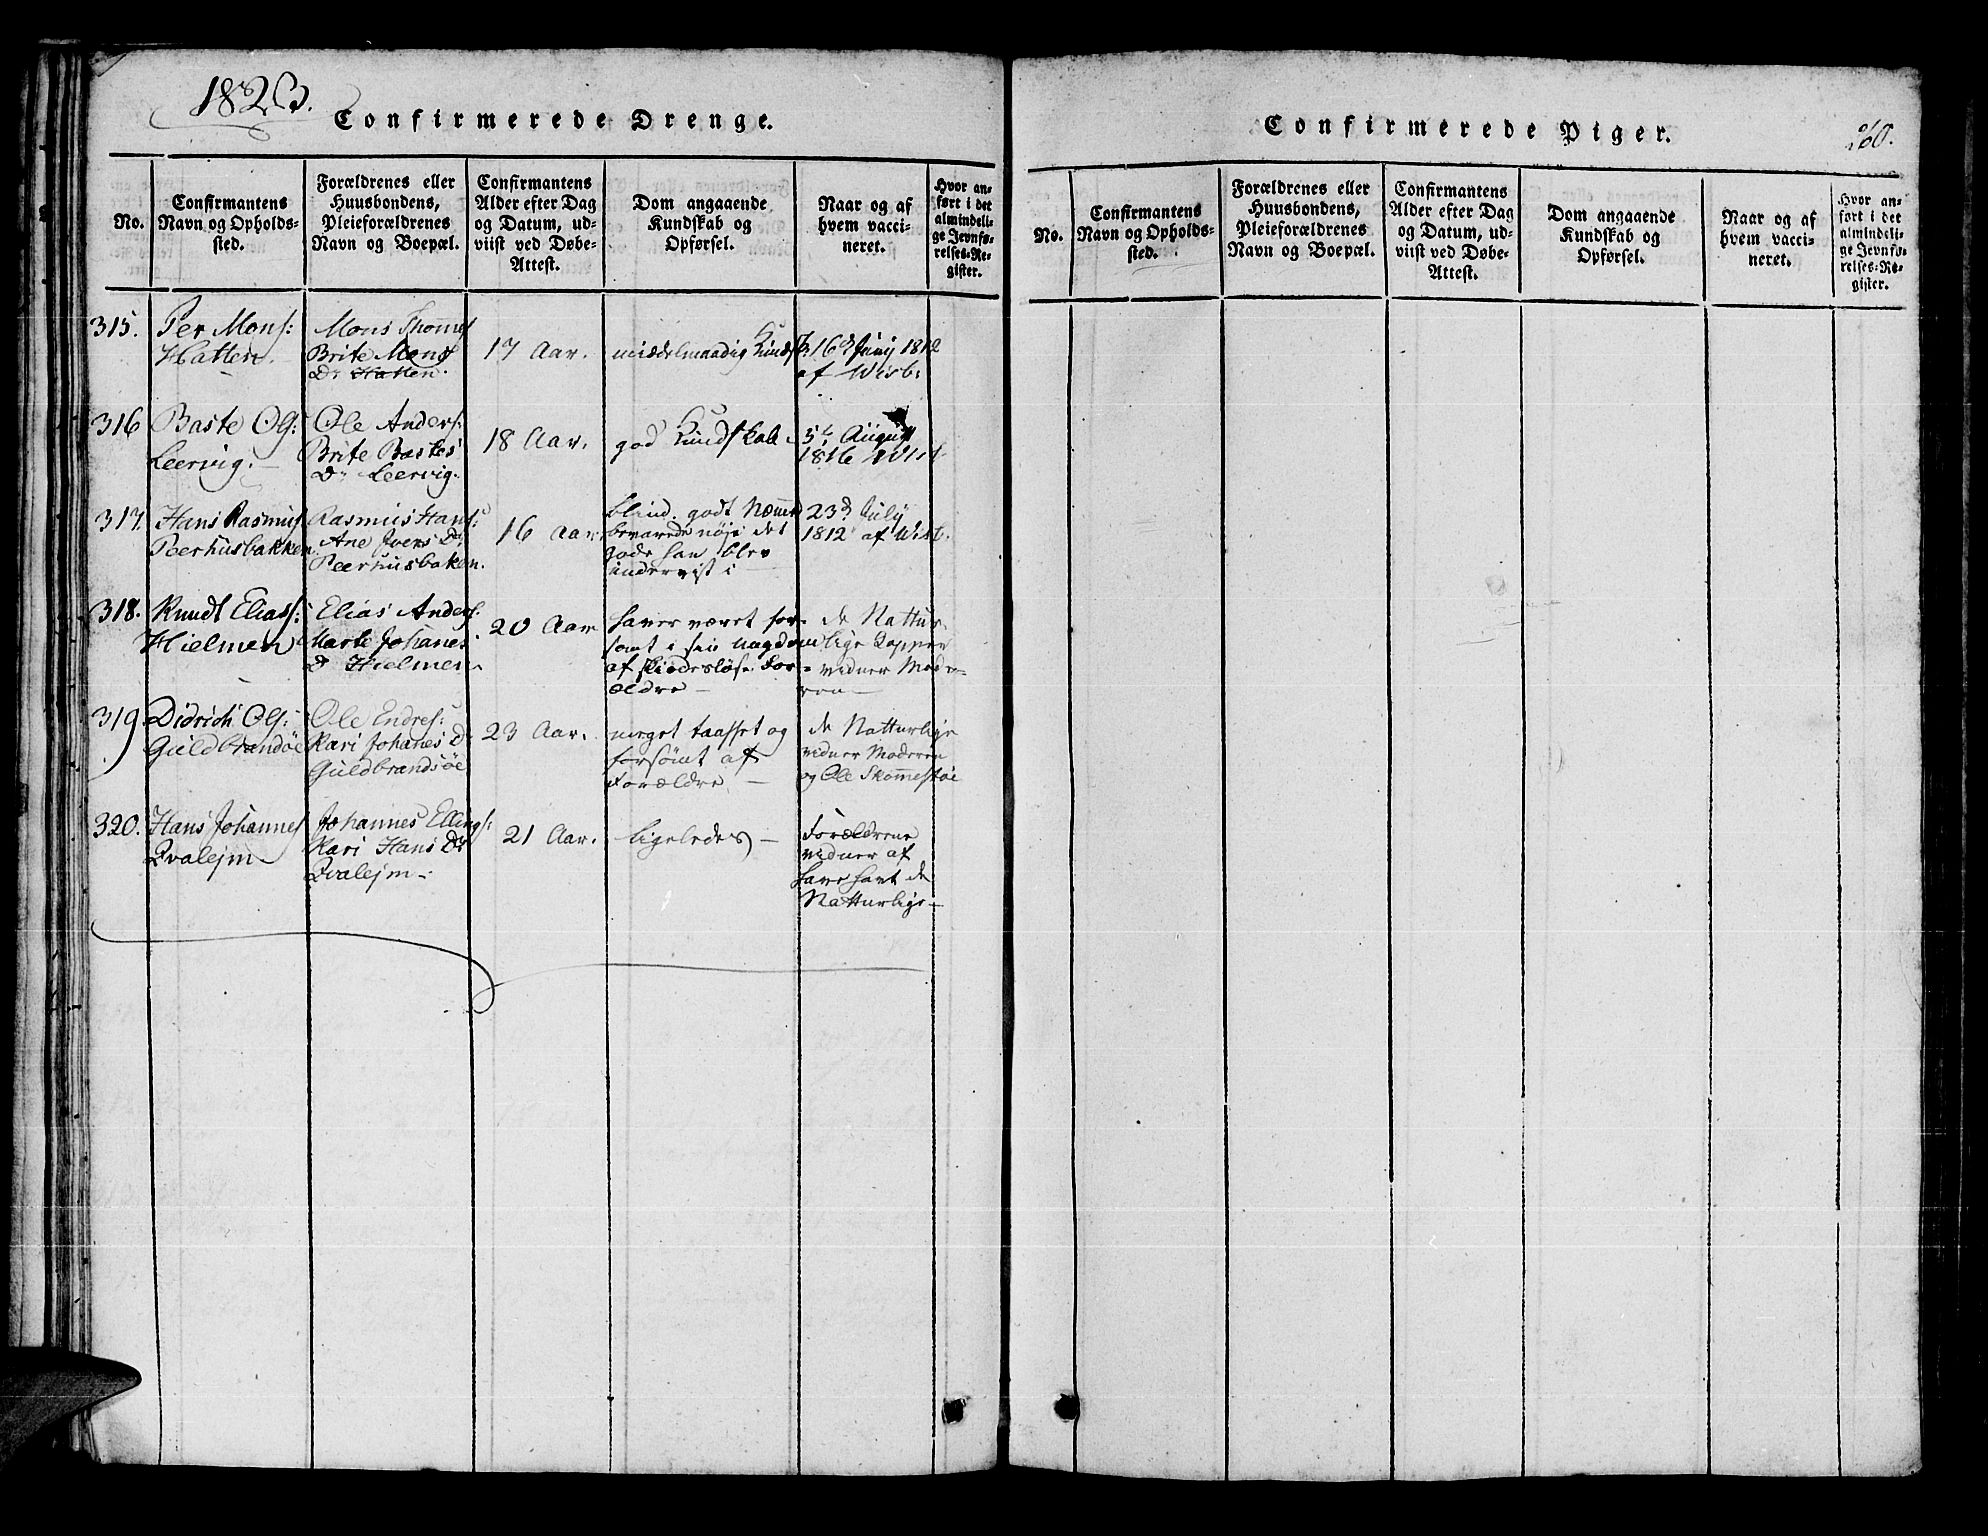 1823.
Confirmerede Drenge.
No.
Confirmantens
Navn og Opholds-
sted.
Forældrenes eller
Huusbondens,
Pleieforældrenes
Navn og Boepæl.
Confirmantens
Alder efter Dag
og Datum, ud-
viist ved Døbe-
Attest.
Dom angaaende
Kundskab og
Opførsel.
Naar og af
hvem vacci-
neret.
Hvor an-
ført i det
almindeli-
ge Jevnfø-
relses-Re-
gister.
315.
Per Mons:
Hatten.
Mons Thomes
Brite Mons
Dr Hatten.
17 Aar.
middelmaadig Kundsk:
16de Junij 1812
af Wisb:
316
Baste Ols:
Leervig.
Ole Anders:
Brite Bastes
Dr Leervig.
18 Aar.
god Kundskab
5te August
1816 Wist
317.
Hans Rasmus
Peerhusbakken
Rasmus Hans:
Ane Ivers Dr
Peerhusbaken.
16 Aar
blind. godt Nemme
bevarede nøje det
gode han blev
undervist i
23de July
1812 af Wist.
318.
Knudt Elias:
Hielmen
Elias Anders:
Marte Johanes
Dr Hielmen
20 Aar
haver været for-
sømt i sin ungdom
af skiødesløse For-
ældre
de Nattur-
lige Kopper
vidner Mode-
ren
319
Didrich Ols:
Guldbrandsøe
Ole Endres:
Kari Johanes Dr
Guldbrandsøe
23 Aar.
meget taasset og
forsømt af
Forældre.
de Natturlige
vidner Moderen
og Ole Skommesøe
320.
Hans Johannes
Qvalejm
Johannes Ellings:
Kari Hans Dr
Qvalejm
21 Aar.
ligeledes
Forældrene
vidner af
have havt de
Natturlige
Confirmerede Piger.
260.
No.
Confirmantens
Navn og Opholds-
sted.
Forældrenes eller
Huusbondens,
Pleieforældrenes
Navn og Boepæl.
Confirmantens
Alder efter Dag
og Datum, ud-
viist ved Døbe-
Attest.
Dom angaaende
Kundskab og
Opførsel.
Naar og af
hvem vacci-
neret.
Hvor an-
ført i det
almindeli-
ge Jevnfø-
relses-Re-
gister.